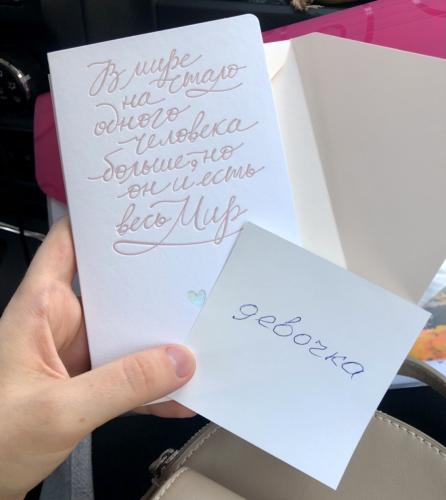 В мире
на стало
одного
человека
больше, но
он и есть
весь Мир
девочка